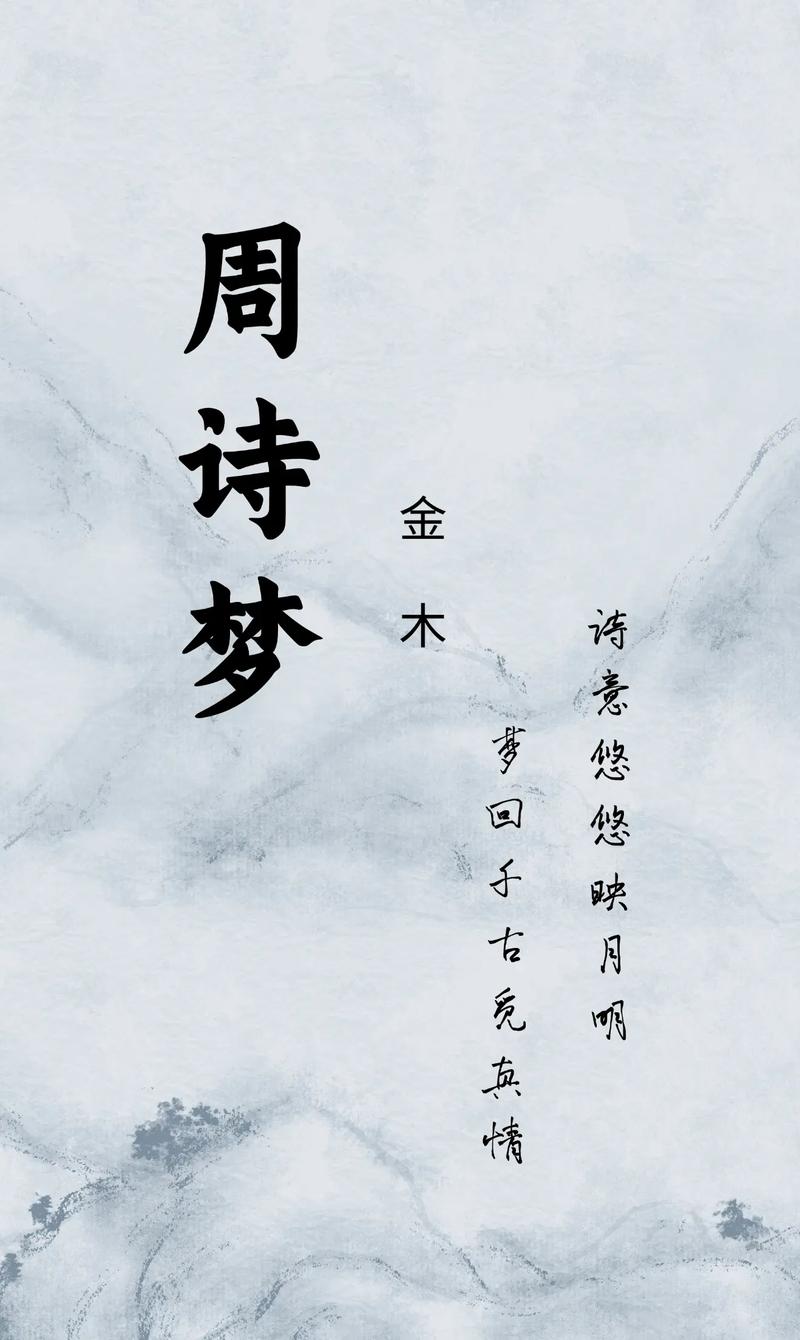 周诗梦
金木
诗意悠悠映月明
梦回千古觅真情